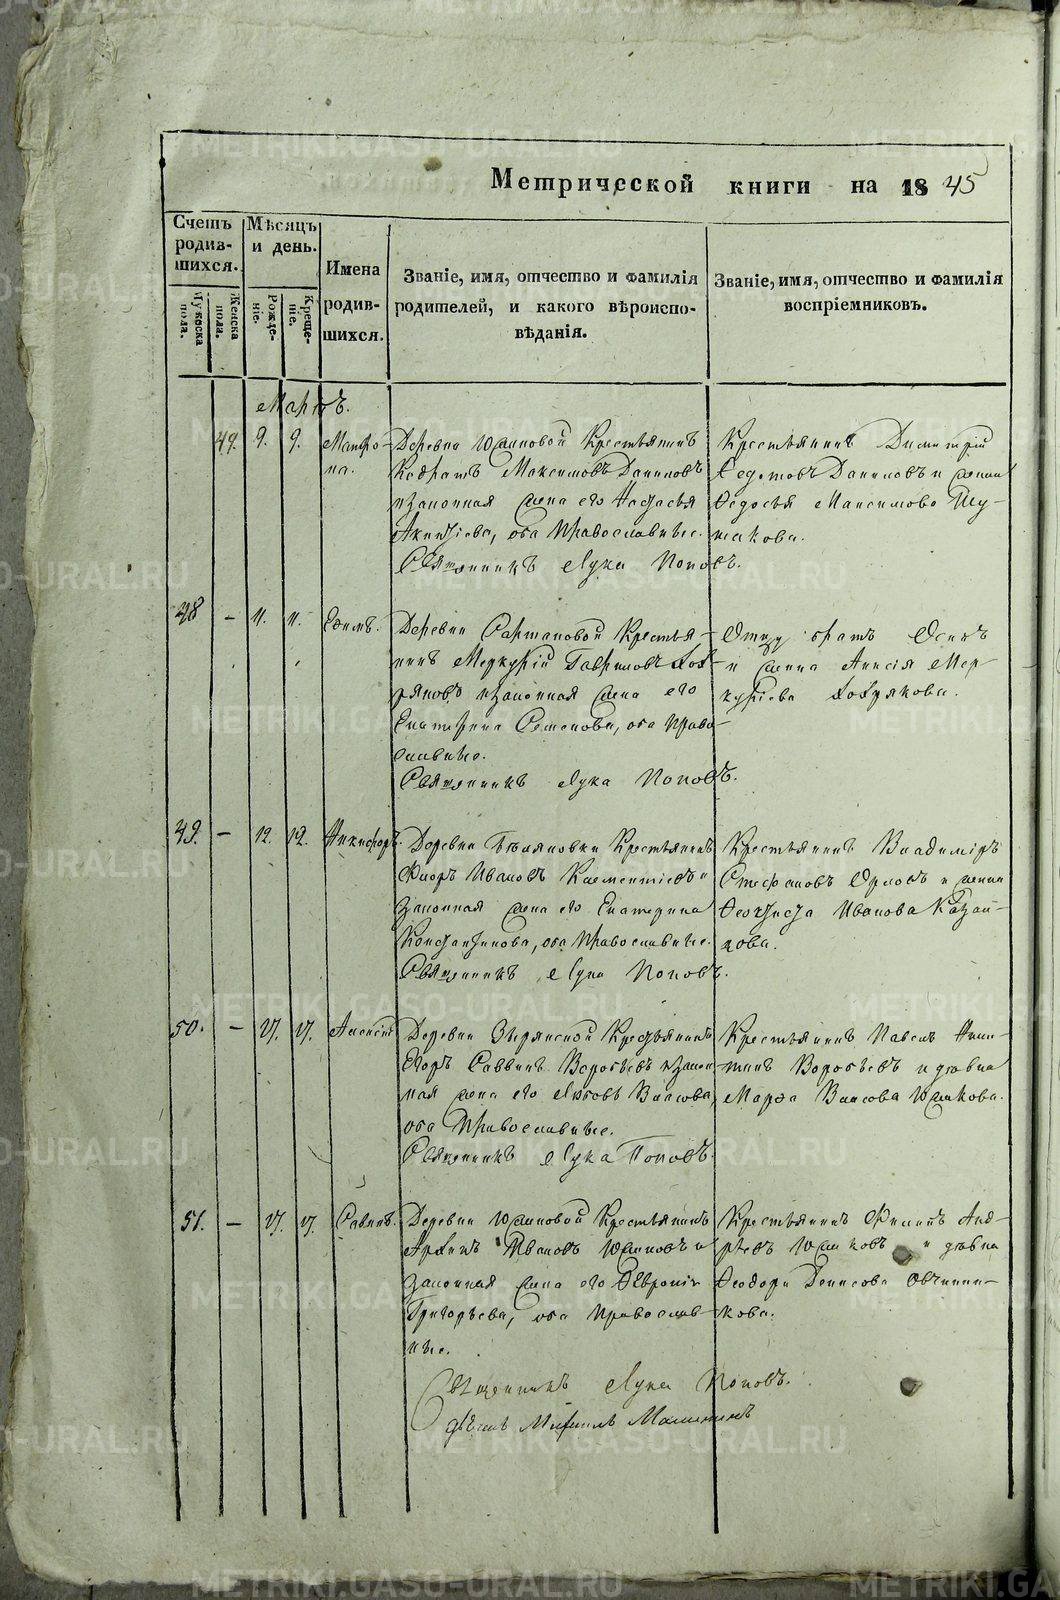 Метрической книги на 1845
Счетъ родив-шихся.
Мужеска пола.
Женска пола.
Мѣсяцъ и день.
Рожде-ніе.
Креще-ніе.
Имена родив-шихся.
Званіе, имя, отчество и фамилія
родителей, и какого вѣроиспо-
вѣданія.
Званіе, имя, отчество и фамилія
воспріемниковъ.
Мартъ.
49. 9. 9. Матро-
на.
Деревни Юшковой Крестьянинъ
Кодратъ Максимовъ Даниловъ
и законная жена его Настасья
оба Православные.
Священникъ Лука Поповъ.
Крестьянинъ Димитрій
Федотовъ Даниловъ и жена
Федосья Максимова
48 - 11. 11. Ефимъ.
Деревни Крестья-
нинъ Меркурій Гавриловъ
и законная жена его
Екатерина Семенова, оба Право-
славные.
Священникъ Лука Поповъ.
Отцу братъ Осипъ
и жена Анисія Мер-
куріева
49. - 12. 12. Никифоръ.
Деревни Крестьянинъ
Флоръ Ивановъ Клементіевъ и
законная жена его Екатерина
Константинова, оба Православные.
Священникъ Лука Поповъ.
Крестьянинъ Владиміръ
Стефановъ Орловъ и жена
Феоктиста Иванова Казан-
кова.
50. - 17. 17. Алексій
Деревни Зырянской Крестьянинъ
Егоръ Саввинъ Воробьевъ и закон-
ная жена его Любовь Власова,
оба Православные.
Священникъ Лука Поповъ.
Крестьянинъ Павелъ Ники-
тинъ Воробьевъ и дѣвка
Марфа Власова Юшкова.
51. - 17. 17. Саввинъ.
Деревни Юшковой Крестьянинъ
Ивановъ Юшковъ и
законная жена его Февронія
Григорьева, оба Православ-
ные.
Крестьянинъ Филипъ Анд-
реевъ Юшковъ и дѣвка
Феодора Денисова Овчинни-
кова.
Священникъ Лука Поповъ.